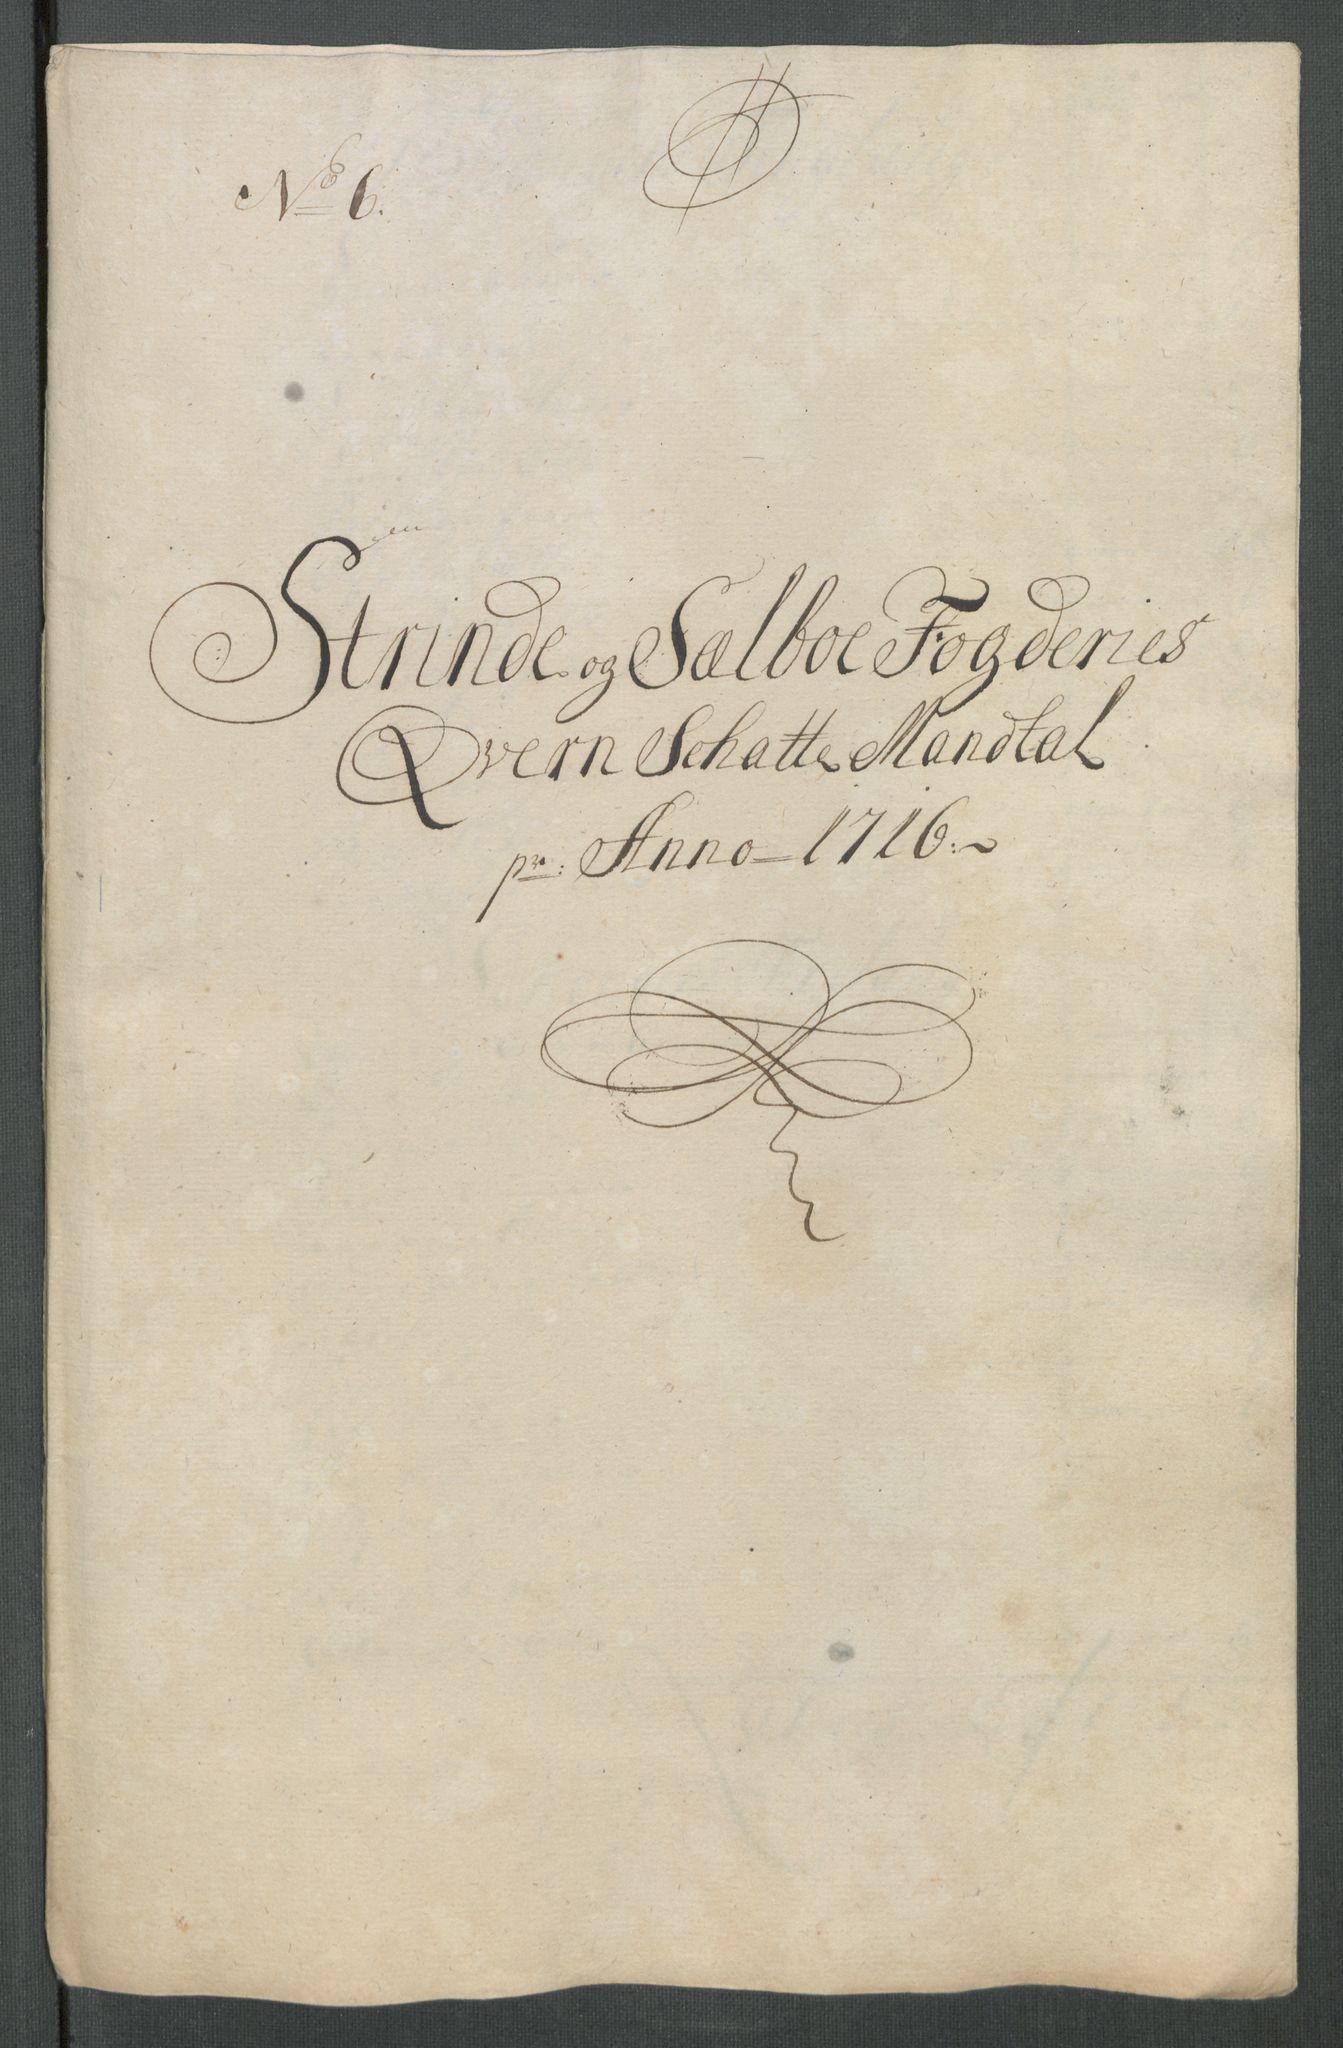 No 6.
Strinde og Sælboe Fogderies
Qvern Schatte Mandtal
pr: Anno 1716.